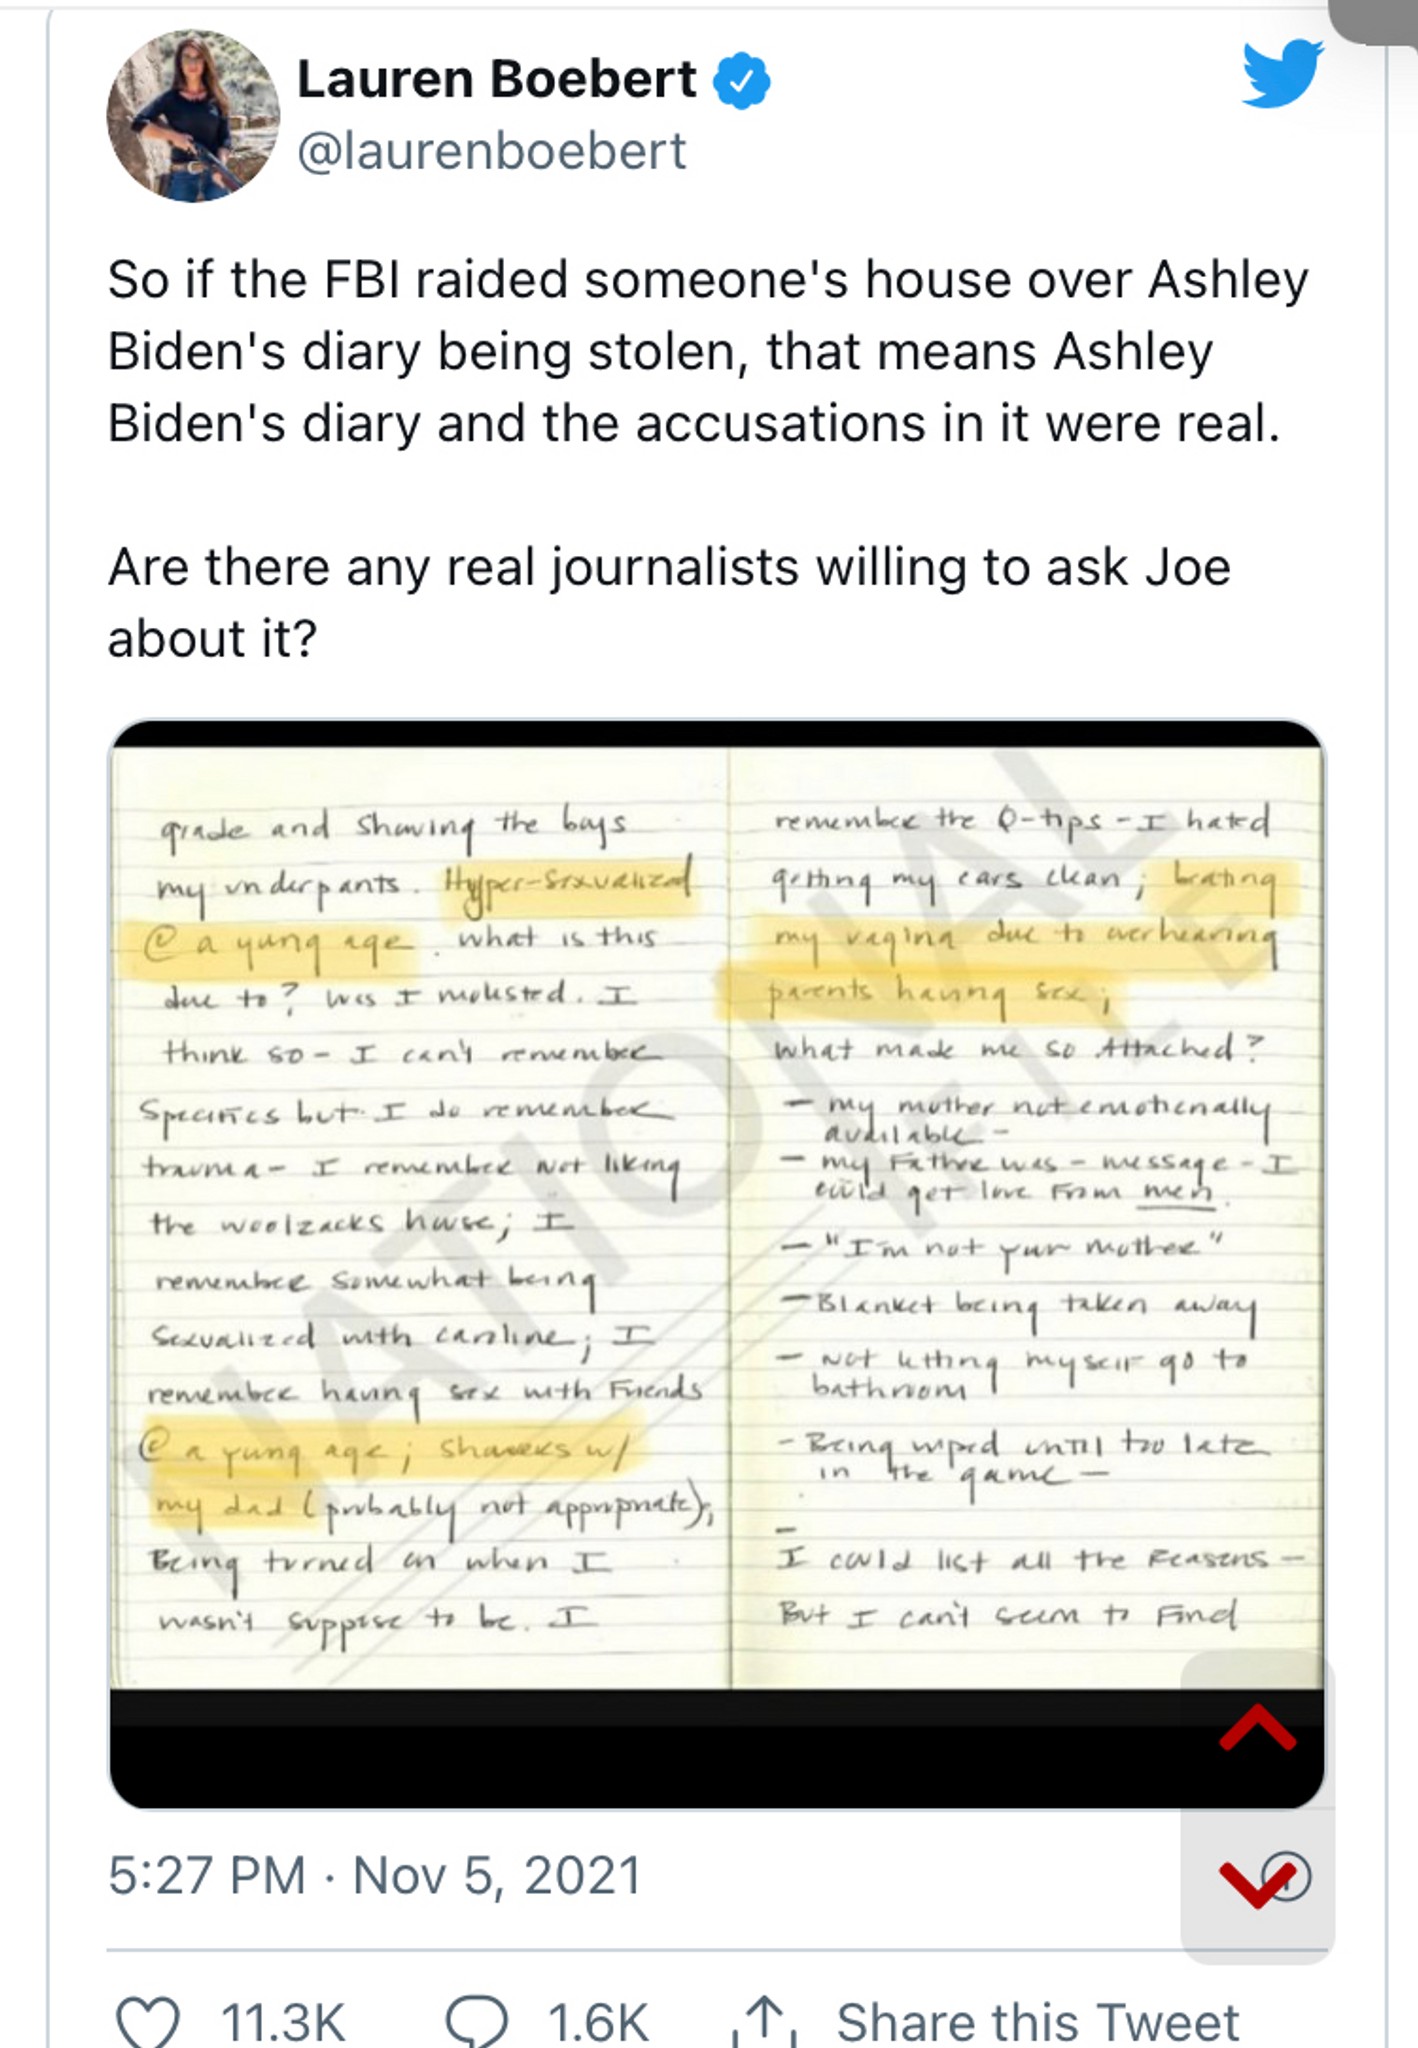 Lauren Boebert
@laurenboebert
So if the FBI raided someone's house over Ashley
Biden's diary being stolen, that means Ashley
Biden's diary and the accusations in it were real.
Are there any real journalists willing to ask Joe
about it?
grade and showing the boys
my underpants. Hyper-sexualized
@ a yung age. what is this
due to? Was I molested. I
think so - I can't remember
specifics but I do remember
trauma - I remember not liking
the woolzacks house; I
remember somewhat being
sexualized with caroline; I
remember having sex with friends
@ a yung age; showers w/
my dad (probably not appropriate);
Being turned on when I
wasn't suppose to be. I
remember the Q-tips - I hated
getting my ears clean;
my vagina due to overhearing
parents having sex;
what made me so Attached?
- my mother not emotionally
available -
- my Father was - message - I
could get love from men.
- "I'm not your mother"
- Blanket being taken away
- Not letting myself go to
bathroom
- Being wiped until too late
in the game -
-
I could list all the reasons -
But I can't seem to Find
NATIONAL
FILE
5:27 PM · Nov 5, 2021
11.3K 1.6K Share this Tweet